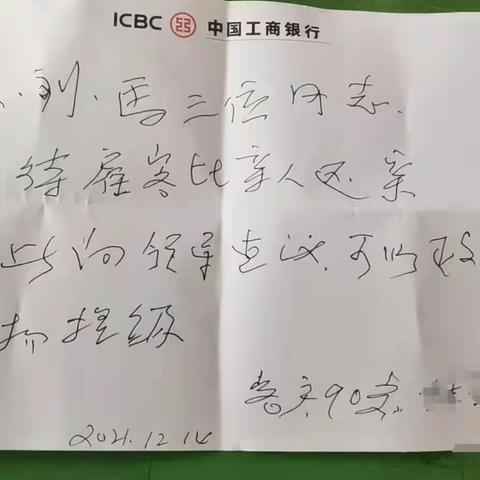 ICBC 中国工商银行
、刘、马三位同志、
待雇客比亲人还亲
此向领导建议、可以
扬提级
客户90岁
2021.12.14